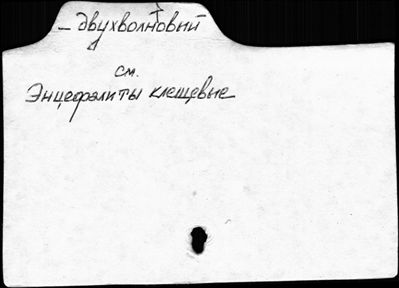 – двухволновый
см.
Энцефалиты клещевые